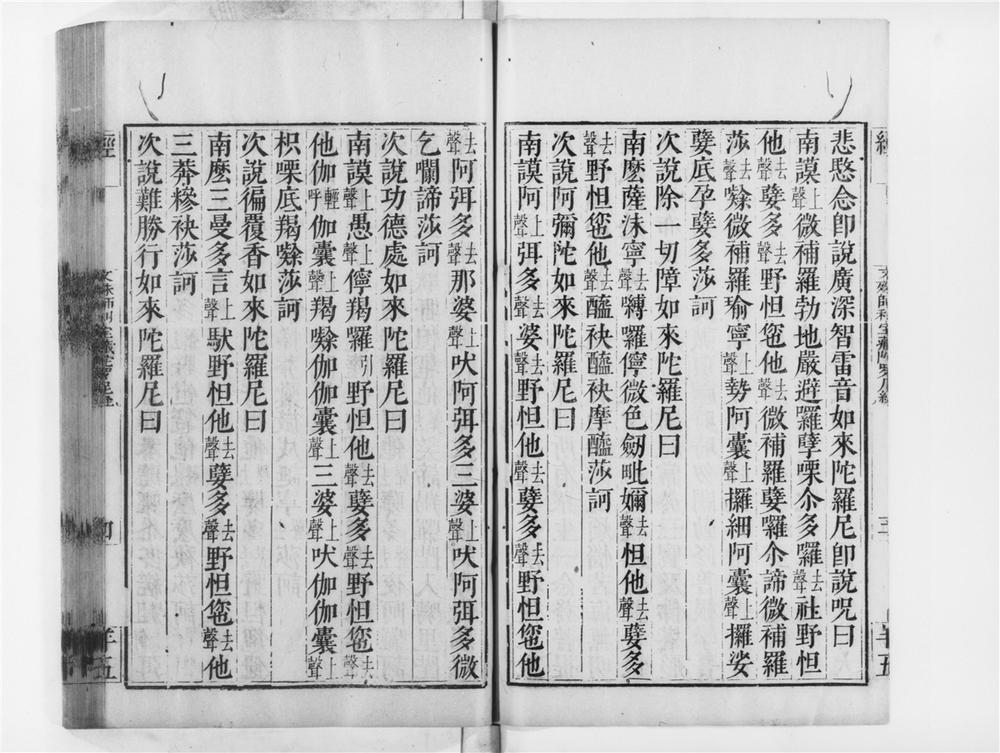 悲愍念卽說廣深智雷音如來陀羅尼卽說呪曰
南謨上聲微補羅勃地嚴避囉孽㗚尒多囉去聲社野怛
他去聲孽多去聲野怛他去聲微補羅孽囉尒諦微補羅
莎去聲㘑微補羅瑜寧上聲勢阿囊上聲攞細阿囊上聲攞娑
孽底孕孽多莎訶
次說除一切障如來陀羅尼曰
南麼薩沬寧去聲嚩羅儜微色劒毗嬭去聲怛他去聲孽多
去聲野怛他去聲醯袂醯袂摩醯莎訶
次說阿彌陀如來陀羅尼曰
南謨阿上聲弭多去聲婆去聲野怛他去聲孽多去聲野怛他
去聲阿弭多去聲那婆上聲吠阿弭多三婆上聲吠阿弭多微
乞囒諦莎訶
次說功德處如來陀羅尼曰
南謨上聲愚上聲儜羯囉引野怛他去聲孽多去聲野怛去聲
他伽輕呼伽囊上聲羯㘑伽伽囊上聲三婆上聲吠伽伽囊上聲
枳㗚底羯㘑莎訶
次說徧覆香如來陀羅尼曰
南麼三曼多言上聲馱野怛他去聲孽多去聲野怛去聲他
三莾糝袂莎訶
次說難勝行如來陀羅尼曰